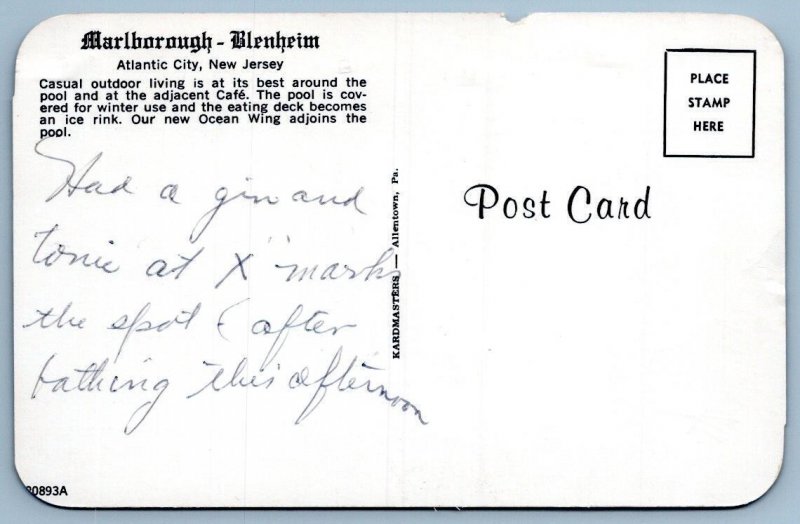 Marlborough - Blenheim
Atlantic City, New Jersey
Casual outdoor living is at its best around the
pool and at the adjacent Café. The pool is cov-
ered for winter use and the eating deck becomes
an ice rink. Our new Ocean Wing adjoins the
pool.
Had a gin and
tonic at "X" marks
the spot (after
bathing this afternoon
KARDMASTERS — Allentown, Pa.
Post Card
PLACE
STAMP
HERE
0893A